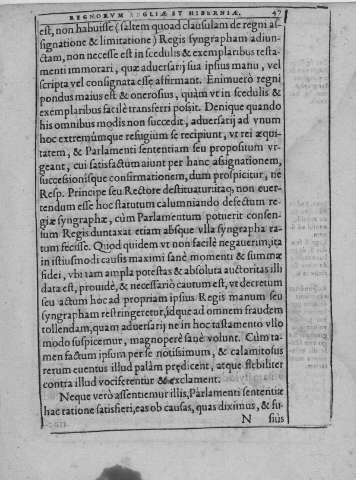 REGNORVM ANGLIÆ ET HIBERNIÆ, 47
est, non habuisse (saltem quoad clausulam de regni as-
signatione & limitatione) Regis syngrapham adiun-
ctam, non necesse est in scedulis & exemplaribus testa-
menti immorari, quæ aduersarij sua ipsius manu, vel
scripta vel consignata esse affirmant. Enimuerò regni
pondus maius est & onerosius, quàm vt in scedulis &
exemplaribus facilè transferri possit. Denique quando
his omnibus modis non succedit, aduersarij ad vnum
hoc extremúmque refugium se recipiunt, vt rei æqui-
tatem, & Parlamenti sententiam seu propositum vr-
geant, cui satisfactum aiunt per hanc assignationem,
successionísque confirmationem, dum prospicitur, ne
Resp. Principe seu Rectore destituatur: itaq; non euer-
tendum esse hoc statutum calumniando defectum re-
giæ syngraphæ, cùm Parlamentum potuerit consen-
sum Regis duntaxat etiam absque vlla syngrapha ra-
tum fecisse. Quod quidem vt non facilè negauerim, ita
in istiusmodi causis maximi sanè momenti & summæ
fidei, vbi tam ampla potestas & absoluta auctoritas illi
data est, prouidè, & necessariò cautum est, vt decretum
seu actum hoc ad propriam ipsius Regis manum seu
syngrapham restringeretur, idque ad omnem fraudem
tollendam, quam aduersarij ne in hoc testamento vllo
modo suspicemur, magnoperè sanè volunt. Cùm ta-
men factum ipsum per se notissimum, & calamitosus
rerum euentus illud palàm prędicent, atque flebiliter
contra illud vociferentur & exclament.
Neque verò assentiemur illis, Parlamenti sententiæ
hac ratione satisfieri, eas ob causas, quas diximus, & fu-
N siùs